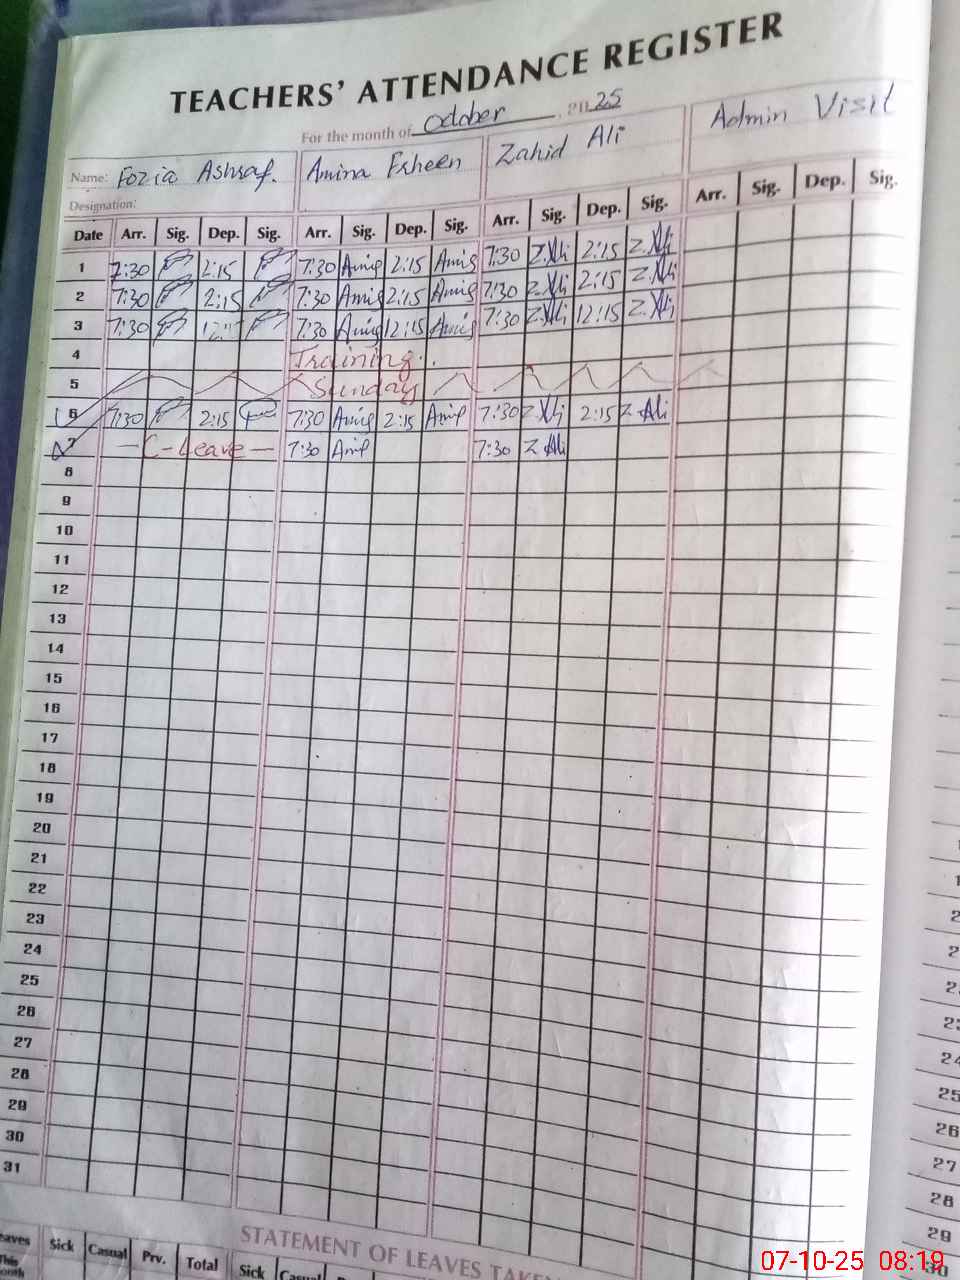 TEACHERS' ATTENDANCE REGISTER
For the month of October 2025
Name: Fozia Ashraf. Amina Zahid Ali Admin Visit
Designation:
Date Arr. Sig. Dep. Sig. Arr. Sig. Dep. Sig. Arr. Sig. Dep. Sig. Arr. Sig. Dep. Sig.
1 7:30 2:15 7:30 2:15 7:30 Z.Ali 2:15 Z.Ali
2 7:30 2:15 7:30 2:15 7:30 Z.Ali 2:15 Z.Ali
3 7:30 7:30 12:15 7:30 Z.Ali 12:15 Z.Ali
4 Training.
5 Sunday
6 7:30 2:15 7:30 2:15 7:30 Z Ali 2:15 Z Ali
7 — C-Leave — 7:30 7:30 Z Ali
8
9
10
11
12
13
14
15
16
17
18
19
20
21
22
23
24
25
26
27
28
29
30
31
STATEMENT OF LEAVES TAKEN
Sick Casual Prv. Total Sick
07-10-25 08:19